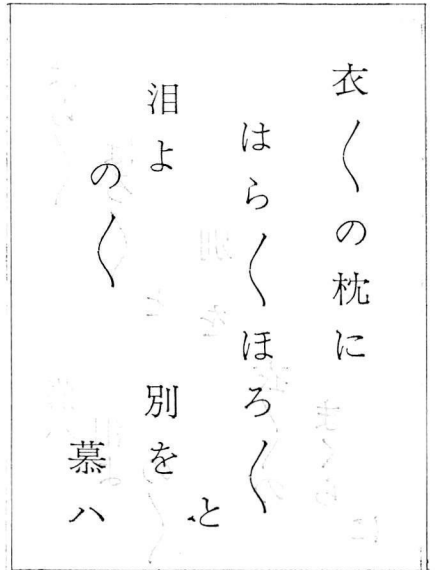 衣〱の枕に
はら〱ほろ〱
と
泪よ　別を
の〱
慕ハ